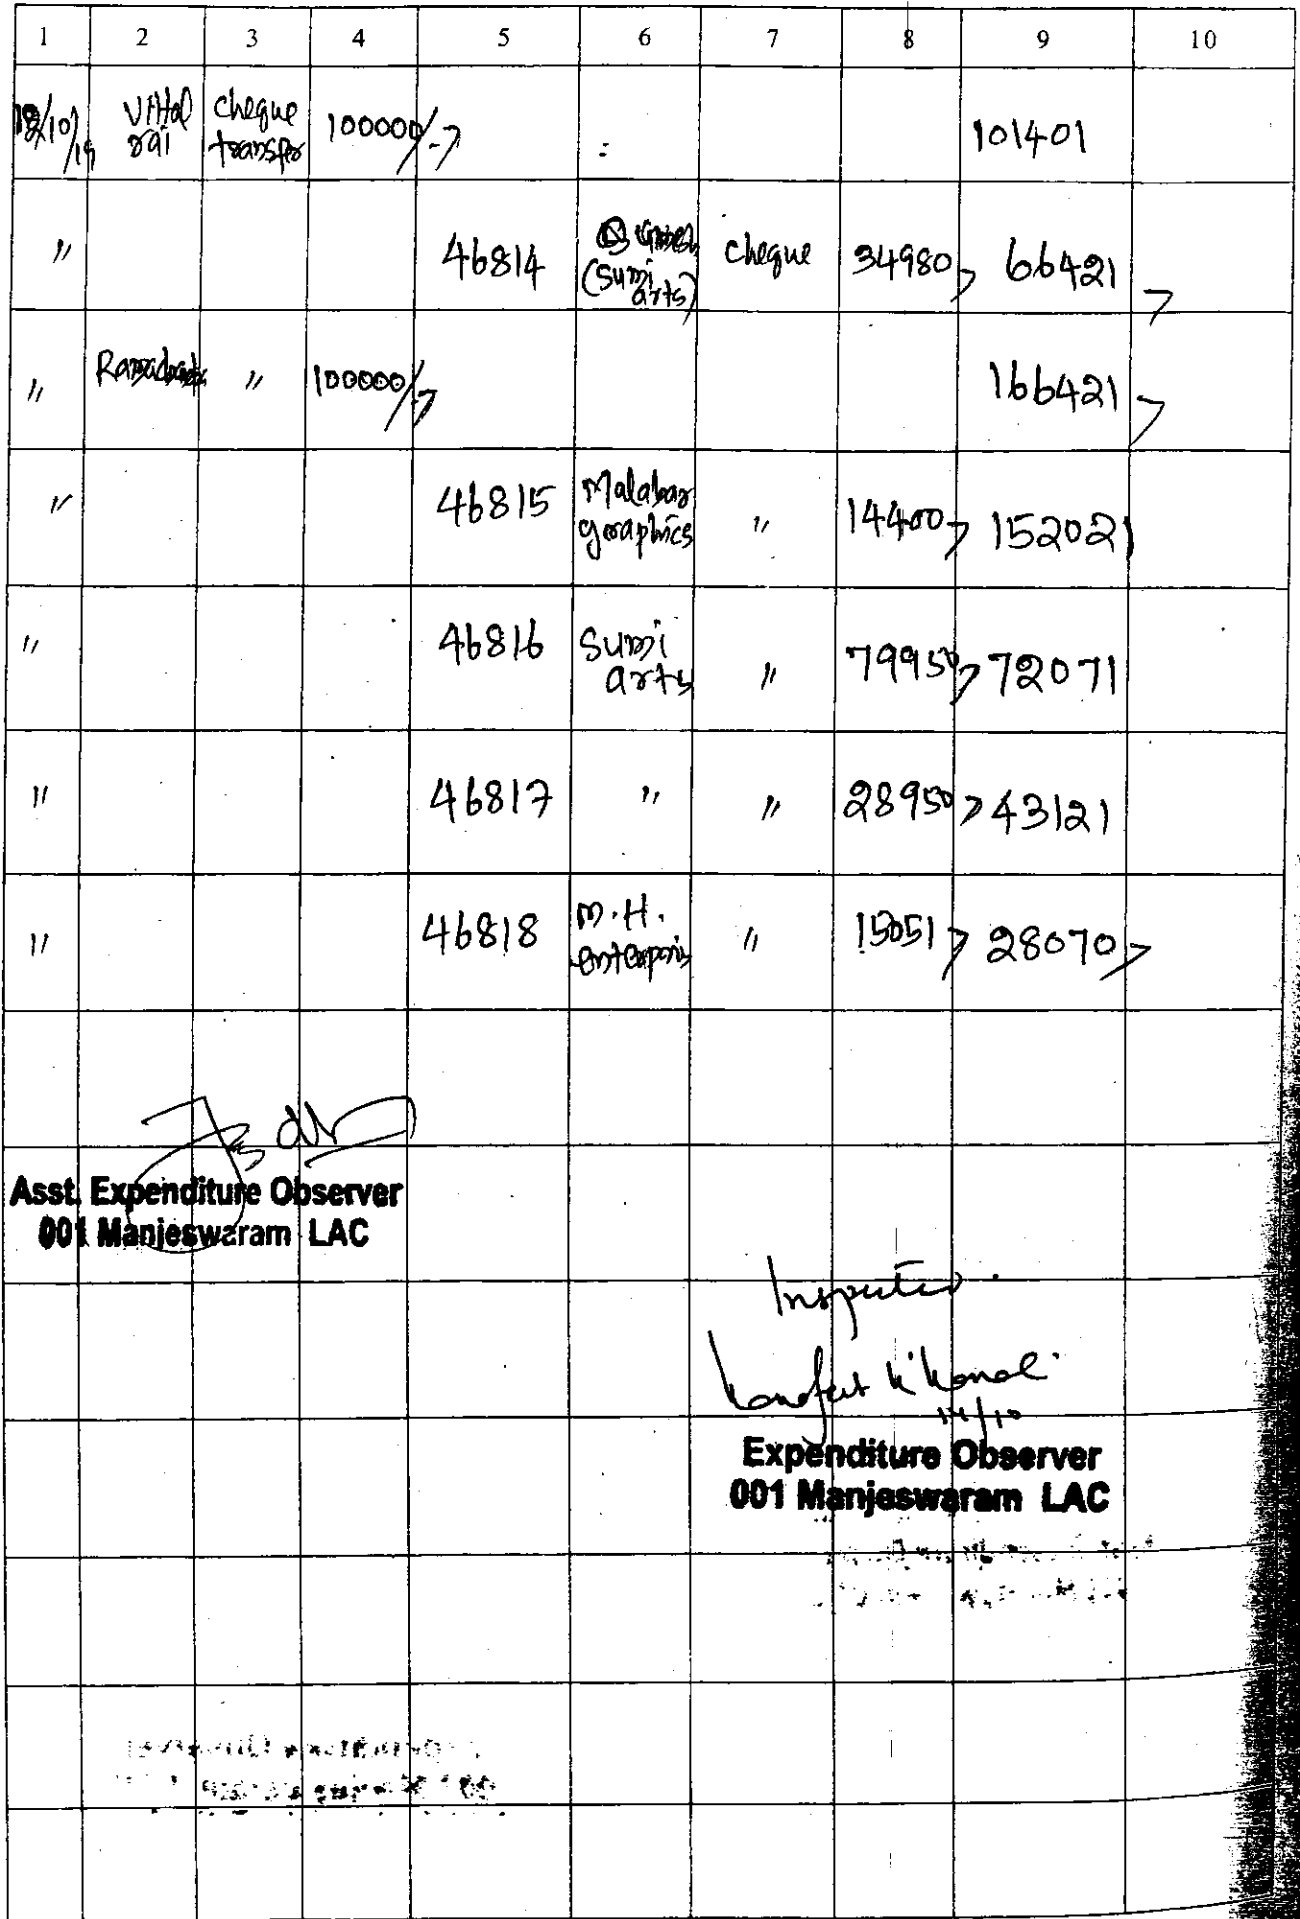 1 2 3 4 5 6 7 8 9 10
/10/19 Vittal rai cheque transfer 100000/- 101401
" 46814 (Sumi arts) cheque 34980 66421
" " 100000/- 166421
" 46815 Malabar graphics " 14400 152021
" 46816 Sumi arts " 79950 72071
" 46817 " " 28950 43121
" 46818 M.H. " 15051 28070
Asst. Expenditure Observer
001 Manjeswaram LAC
Inspected
14/10
Expenditure Observer
001 Manjeswaram LAC